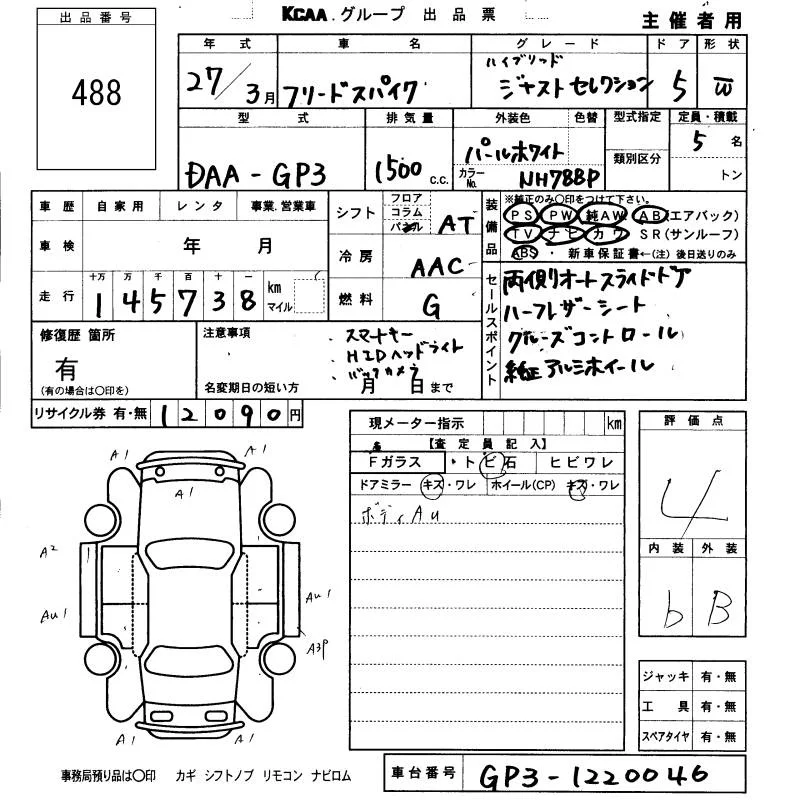 出品番号
488
KCAA.グループ 出品票
主催者用
年式 車名 グレード ドア 形状
27/3月 フリードスパイク ハイブリッド ジャストセレクション 5 W
型式 排気量 外装色 色替 型式指定 定員・積載
DAA-GP3 1500 c.c. パールホワイト 類別区分 5名
カラーNo. NH788P トン
車歴 自家用 レンタ 事業.営業車
車検 年 月
走行 十万 万 千 百 十 一 km マイル
1 4 5 7 3 8
シフト フロア コラム パネル AT
冷房 AAC
燃料 G
装備品 ※純正のみ○印をつけて下さい。
PS PW 純AW AB(エアバック)
TV ナビ カワ SR(サンルーフ)
ABS・新車保証書←(注)後日送りのみ
セールスポイント
両側オートスライドドア
ハーフレザーシート
クルーズコントロール
純正アルミホイール
修復歴 箇所
有
(有の場合は○印を)
注意事項
・スマートキー
・HIDヘッドライト
・バックカメラ
名変期日の短い方 月 日まで
リサイクル券 有・無 12090円
現メーター指示 km
【査定員記入】
Fガラス ・トビ石 ヒビワレ
ドアミラー キズ・ワレ ホイール(CP) キズ・ワレ
ボディAU
評価点
4
内装 外装
b B
A1 A1
A1
A2
AU1 AU1
A3P
A1 A1
ジャッキ 有・無
工具 有・無
スペアタイヤ 有・無
事務局預り品は○印 カギ シフトノブ リモコン ナビロム
車台番号 GP3-1220046